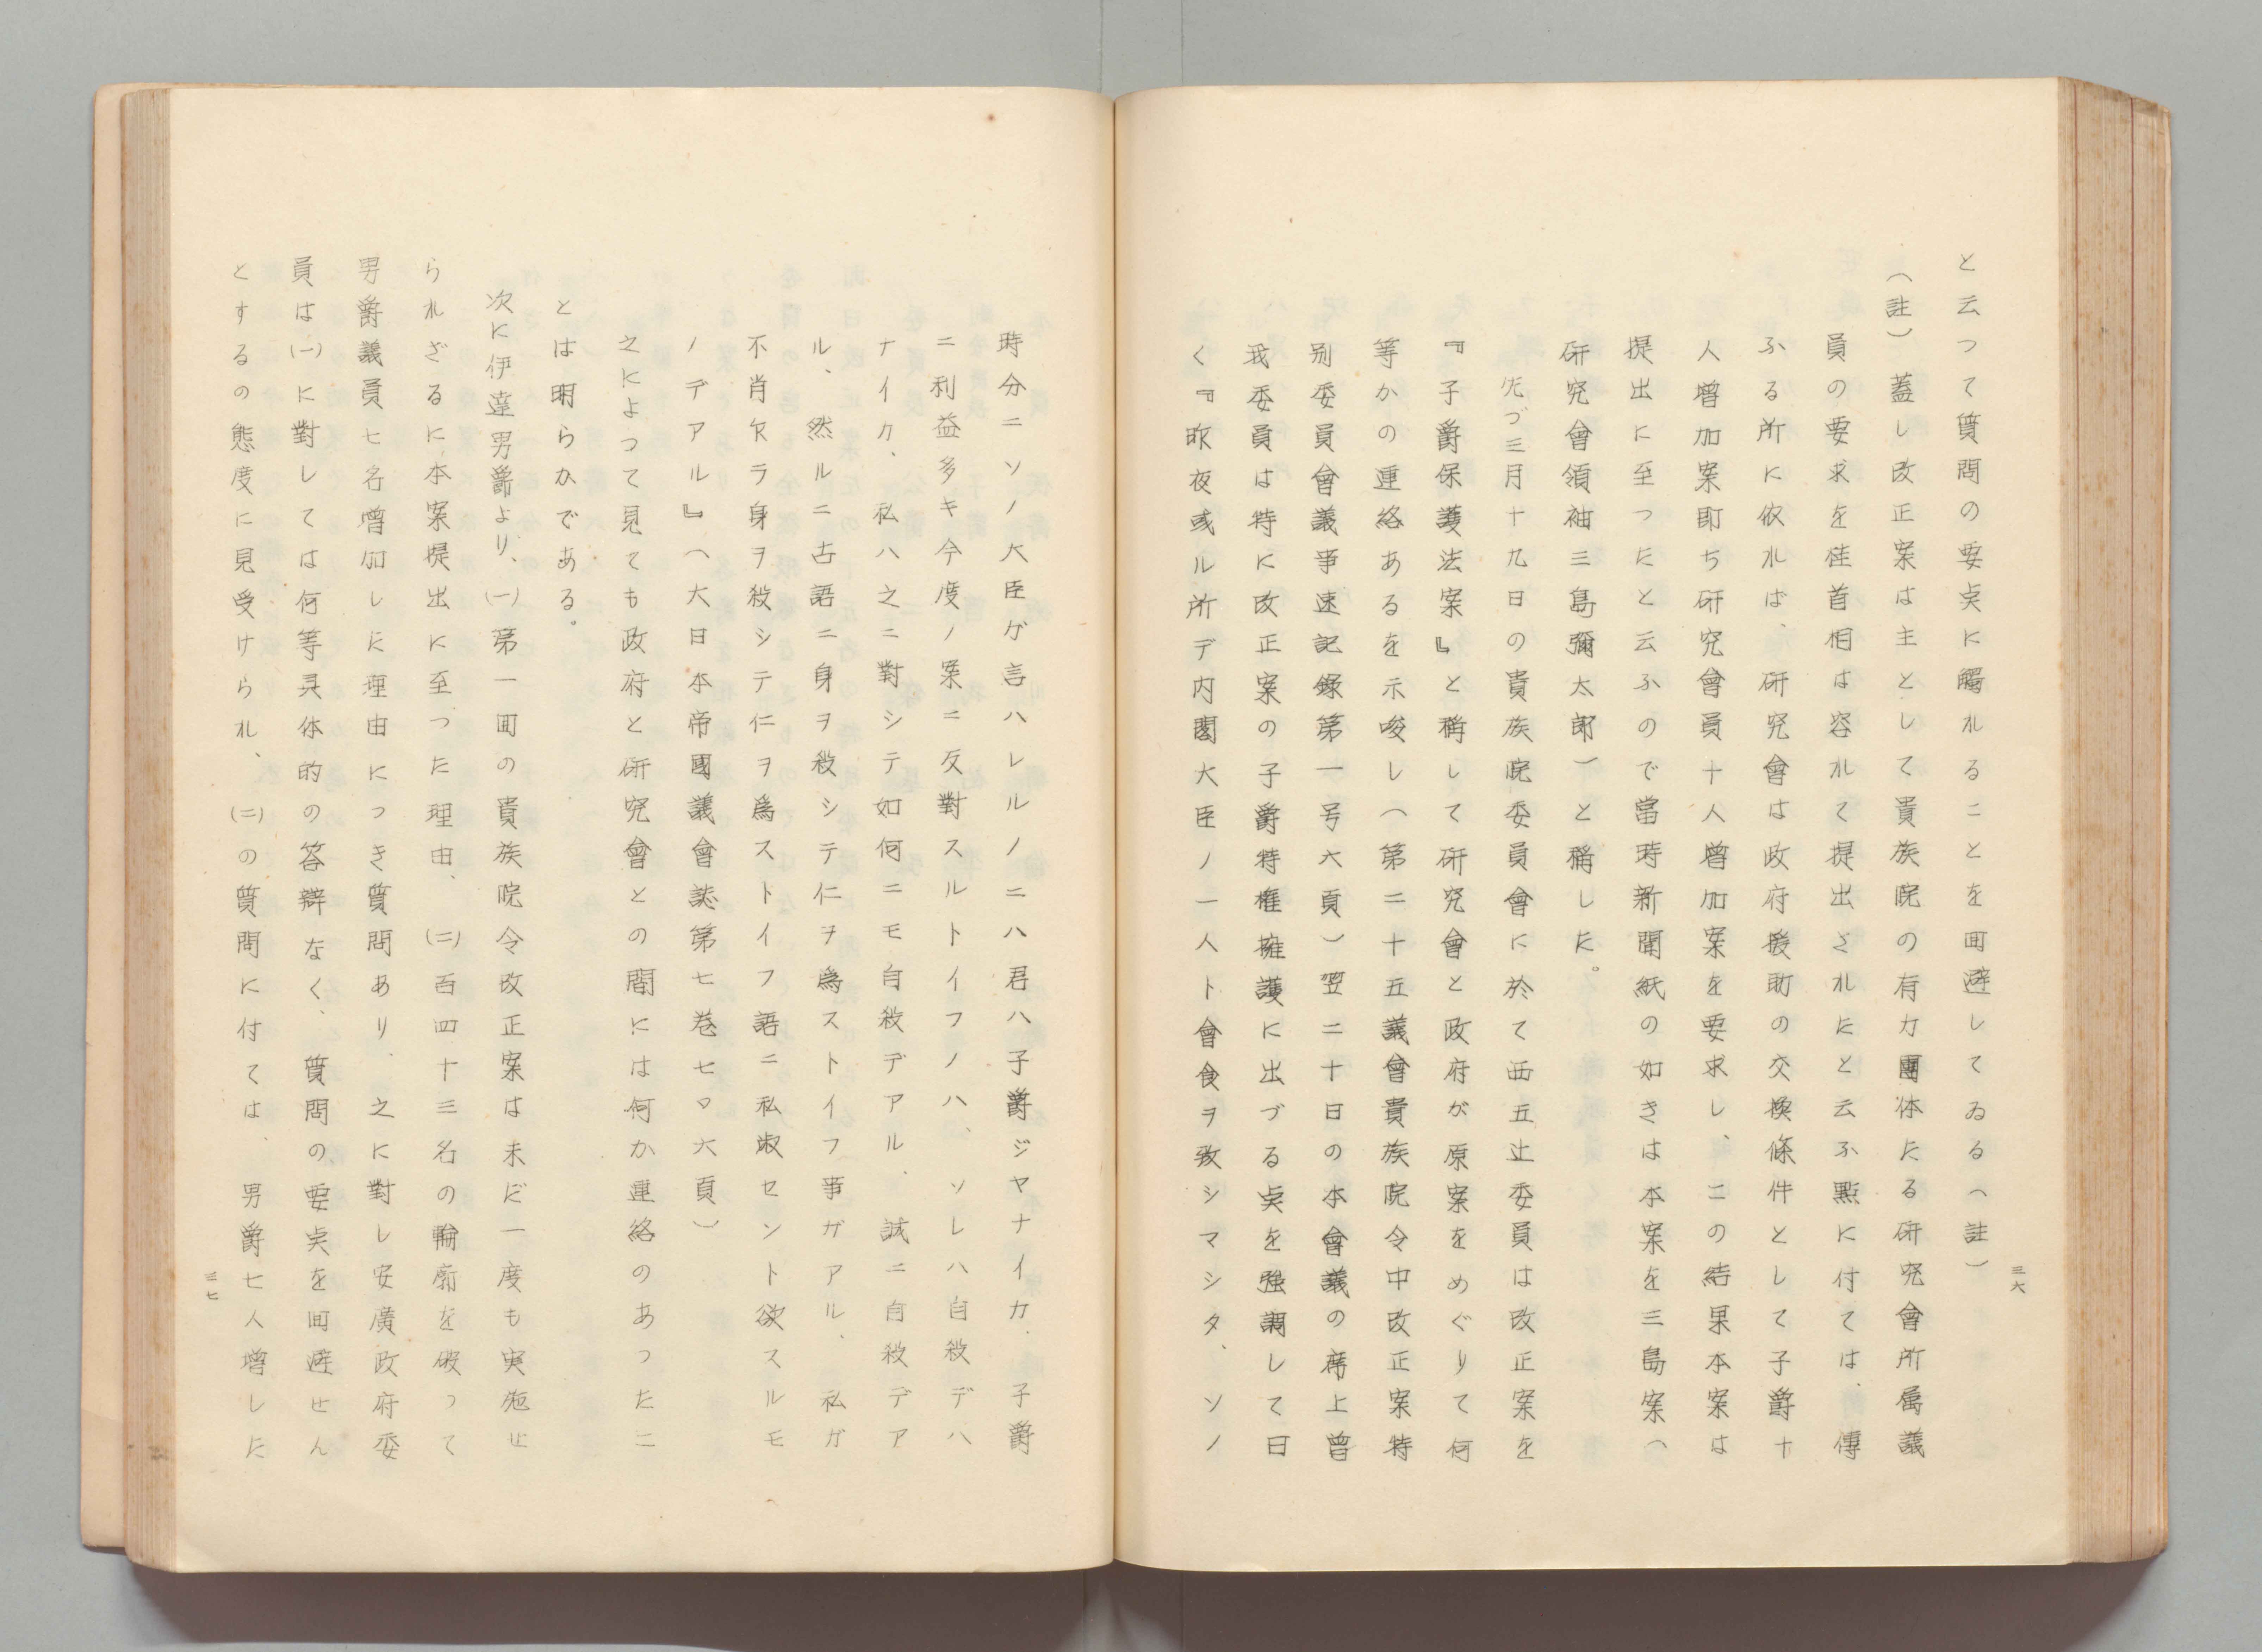 と云つて質問の要点に觸れることを囬避してゐる（註）
（註）蓋し改正案は主として貴族院の有力團体たる研究會所属議
員の要求を桂首相は容れて提出されたと云ふ點に付ては、傳
ふる所に依れば、研究會は政府援助の交換條件として子爵十
人増加案即ち研究會員十人増加案を要求し、この結果本案は
提出に至つたと云ふので當時新聞紙の如きは本案を三島案（
研究會領袖三島彌太郎）と稱した。
先づ三月十九日の貴族院委員會に於て西五辻委員は改正案を
『子爵保護法案』と稱して研究會と政府が原案をめぐりて何
等かの連絡あるを示唆し（第二十五議會貴族院令中改正案特
別委員會議事速記錄第一号六頁）翌二十日の本會議の席上曽
我委員は特に改正案の子爵特権擁護に出づる点を強調して曰
く『昨夜或ル所デ内閣大臣ノ一人ト會食ヲ致シマシタ、ソノ
三六
時分ニソノ大臣ゲ言ハレルノニハ君ハ子爵ジヤナイカ、子爵
ニ利益多キ今度ノ案ニ反對スルトイフノハ、ソレハ自殺デハ
ナイカ、私ハ之ニ對シテ如何ニモ自殺デアル、誠ニ自殺デア
ル、然ルニ古語ニ身ヲ殺シテ仁ヲ爲ストイフ事ガアル、私ガ
不肖欠ラ身ヲ殺シテ仁ヲ爲ストイフ語ニ私淑セント欲スルモ
ノデアル』（大日本帝國議會誌第七巻七〇六頁）
之によつて見ても政府と研究會との間には何か連絡のあつたこ
とは明らかである。
次に伊達男爵より、㈠第一囬の貴族院令改正案は未だ一度も実施せ
られざるに本案提出に至つた理由、㈡百四十三名の輪廓を破つて
男爵議員七名増加した理由につき質問あり、之に對し安廣政府委
員は㈠に對しては何等具体的の答辯なく、質問の要点を囬避せん
とするの態度に見受けられ、㈡の質問に付ては、男爵七人増した
三七